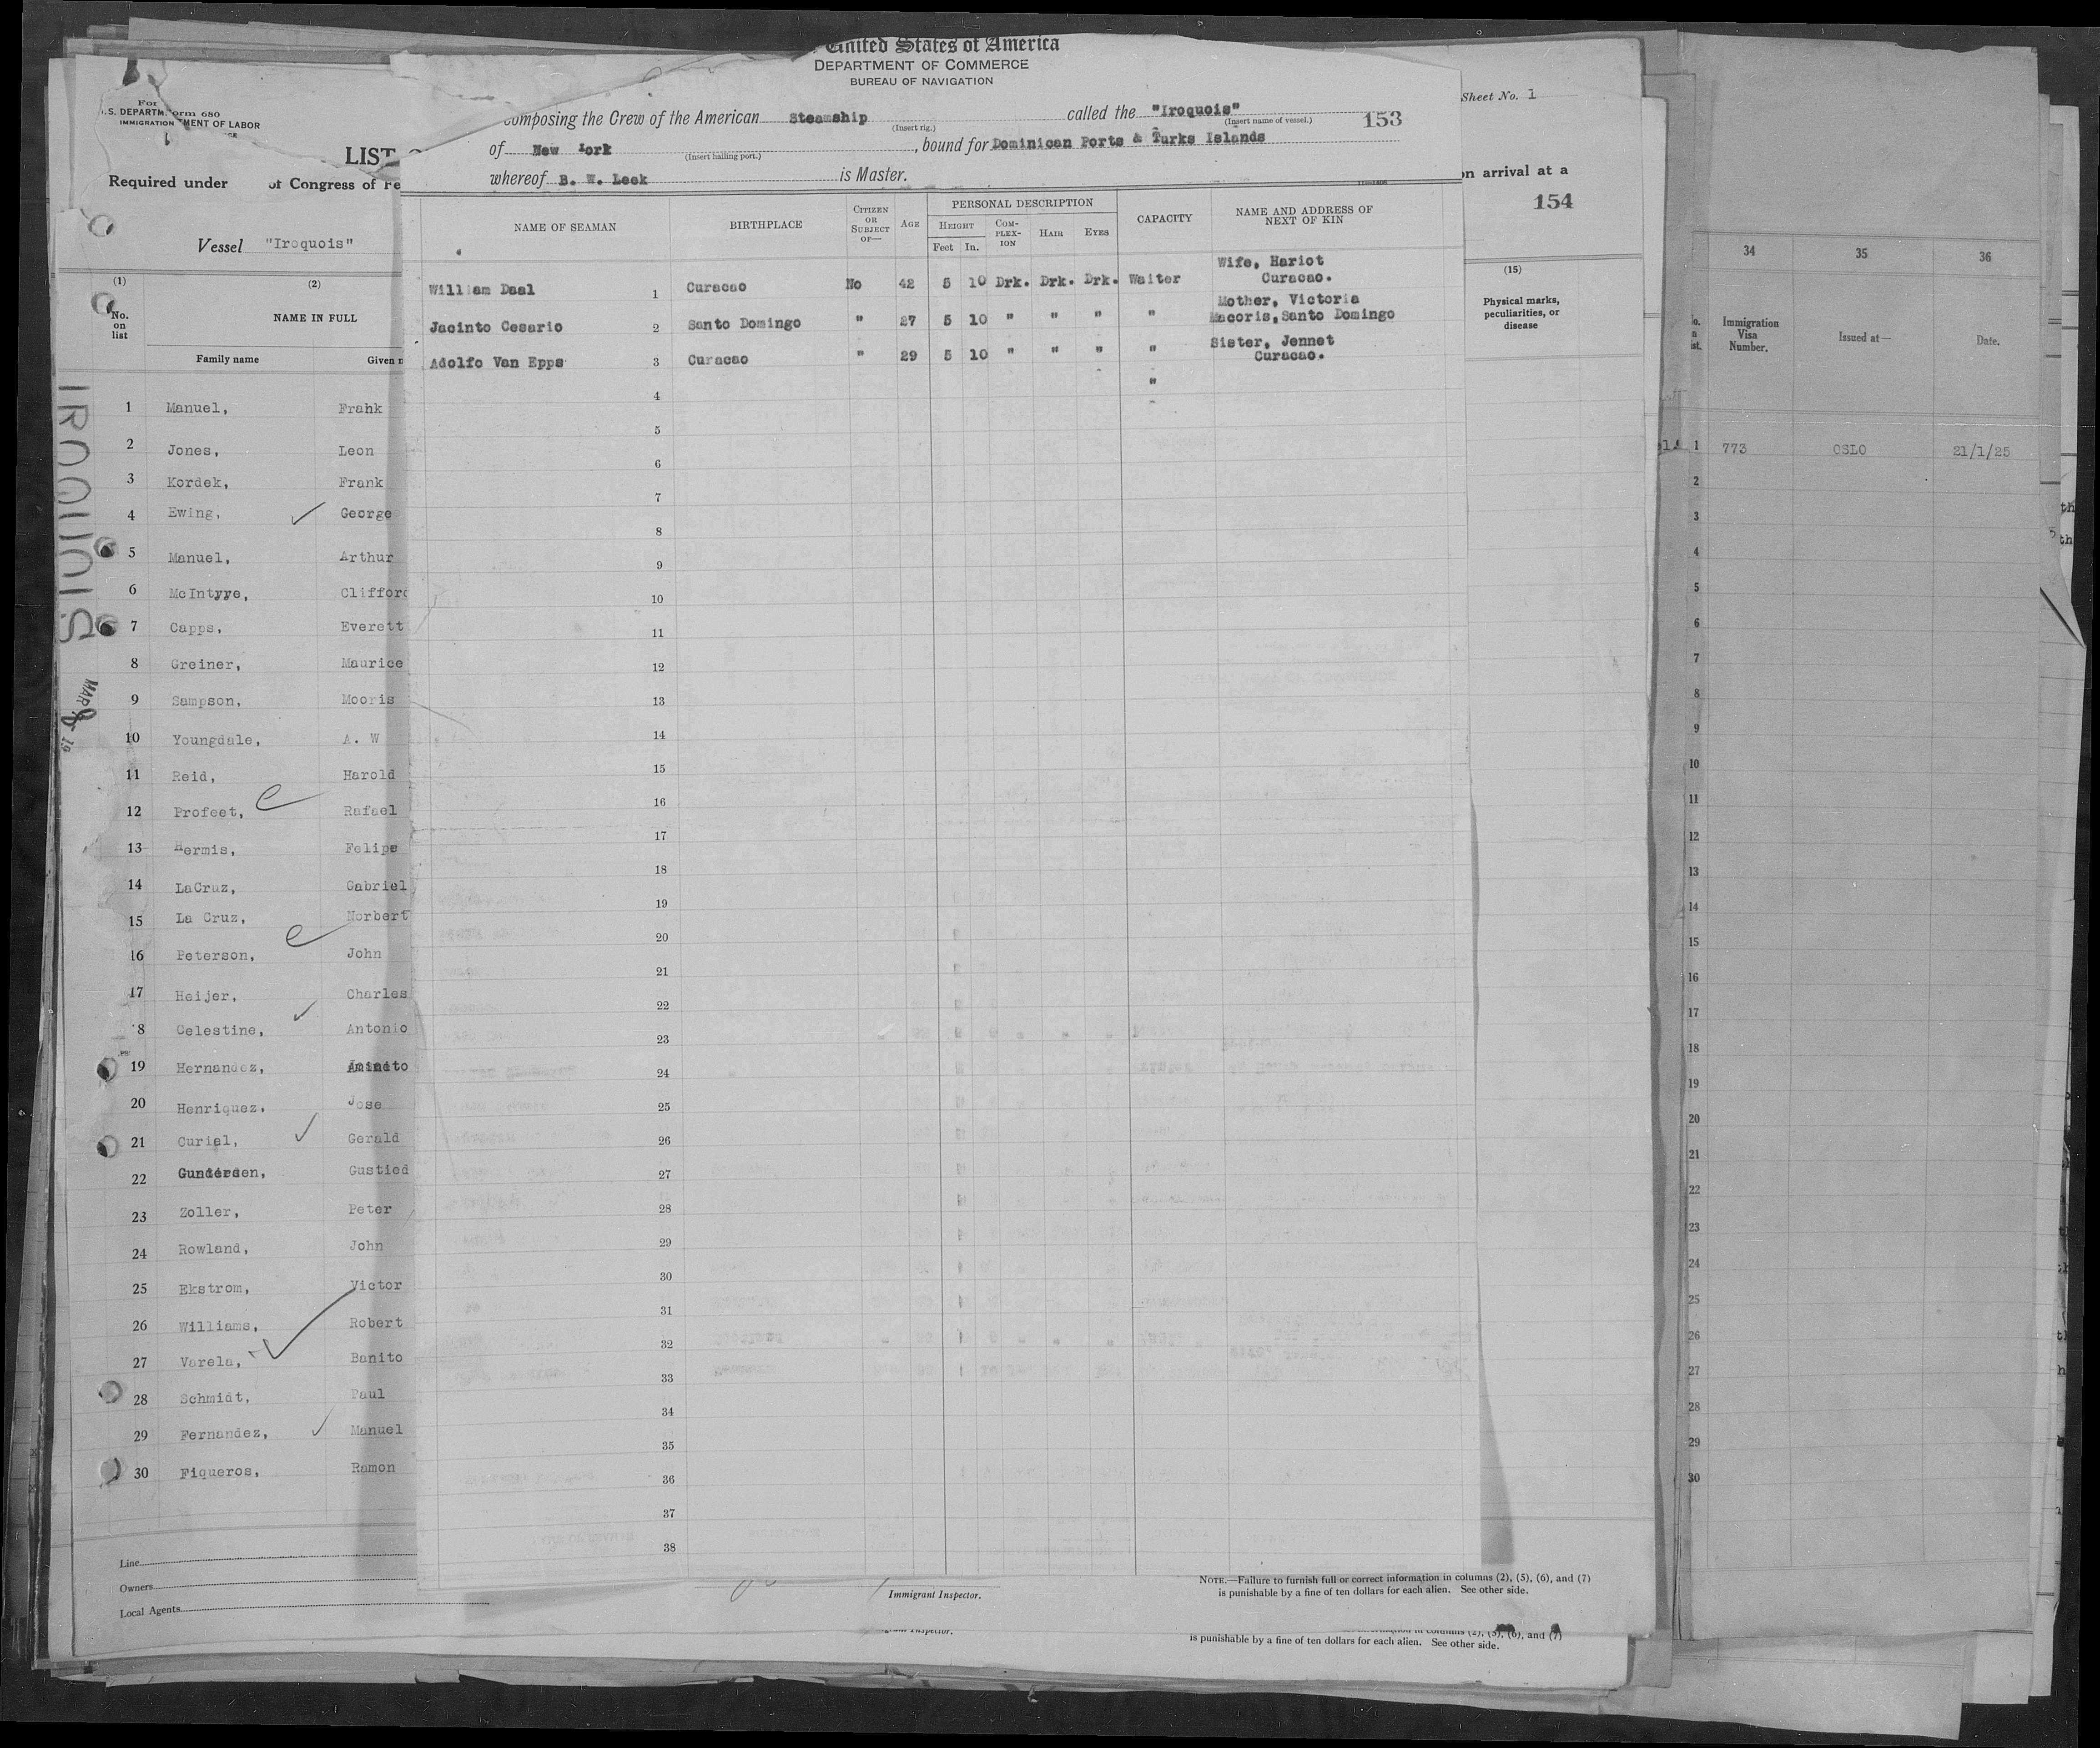 United States of America
DEPARTMENT OF COMMERCE
BUREAU OF NAVIGATION
composing the Crew of the American Steamship called the "Iroquois"
(Insert rig.) (Insert name of vessel.) 153
of New York, bound for Dominican Ports & Turks Islands
(Insert hailing port.)
whereof B. W. Leek is Master.
NAME OF SEAMAN BIRTHPLACE CITIZEN OR SUBJECT OF— AGE PERSONAL DESCRIPTION CAPACITY NAME AND ADDRESS OF NEXT OF KIN
HEIGHT COMPLEXION HAIR EYES
Feet In.
William Daal 1 Curacao No 42 5 10 Drk. Drk. Drk. Waiter Wife, Hariot Curacao.
Jacinto Cesario 2 Santo Domingo " 27 5 10 " " " " Mother, Victoria Macoris, Santo Domingo
Adolfo Van Epps 3 Curacao " 29 5 10 " " " " Sister, Jennet Curacao.
4 "
5
6
7
8
9
10
11
12
13
14
15
16
17
18
19
20
21
22
23
24
25
26
27
28
29
30
31
32
33
34
35
36
37
38
Form 680
U.S. DEPARTMENT OF LABOR
IMMIGRATION
LIST
Required under of Congress of
Vessel "Iroquois"
(1) (2)
No. on list NAME IN FULL
Family name Given
1 Manuel, Frank
2 Jones, Leon
3 Kordek, Frank
4 Ewing, George
5 Manuel, Arthur
6 McIntyre, Clifford
7 Capps, Everett
8 Greiner, Maurice
9 Sampson, Mooris
10 Youngdale, A. W
11 Reid, Harold
12 Profeet, Rafael
13 Hermis, Felipe
14 LaCruz, Gabriel
15 La Cruz, Norbert
16 Peterson, John
17 Heijer, Charles
18 Celestine, Antonio
19 Hernandez,
20 Henriquez, Jose
21 Curiel, Gerald
22 Gundersen, Gustied
23 Zoller, Peter
24 Rowland, John
25 Ekstrom, Victor
26 Williams, Robert
27 Varela, Banito
28 Schmidt, Paul
29 Fernandez, Manuel
30 Fiqueros, Ramon
Line
Owners
Local Agents
IROQUOIS
MAR
Immigrant Inspector.
NOTE.—Failure to furnish full or correct information in columns (2), (5), (6), and (7)
is punishable by a fine of ten dollars for each alien. See other side.
Inspector.
information in columns (2), (5), (6), and (7)
is punishable by a fine of ten dollars for each alien. See other side.
Sheet No. 1
on arrival at a
154
(15)
Physical marks, peculiarities, or disease
34 35 36
Immigration Visa Number. Issued at— Date.
1 773 OSLO 21/1/25
2
3
4
5
6
7
8
9
10
11
12
13
14
15
16
17
18
19
20
21
22
23
24
25
26
27
28
29
30